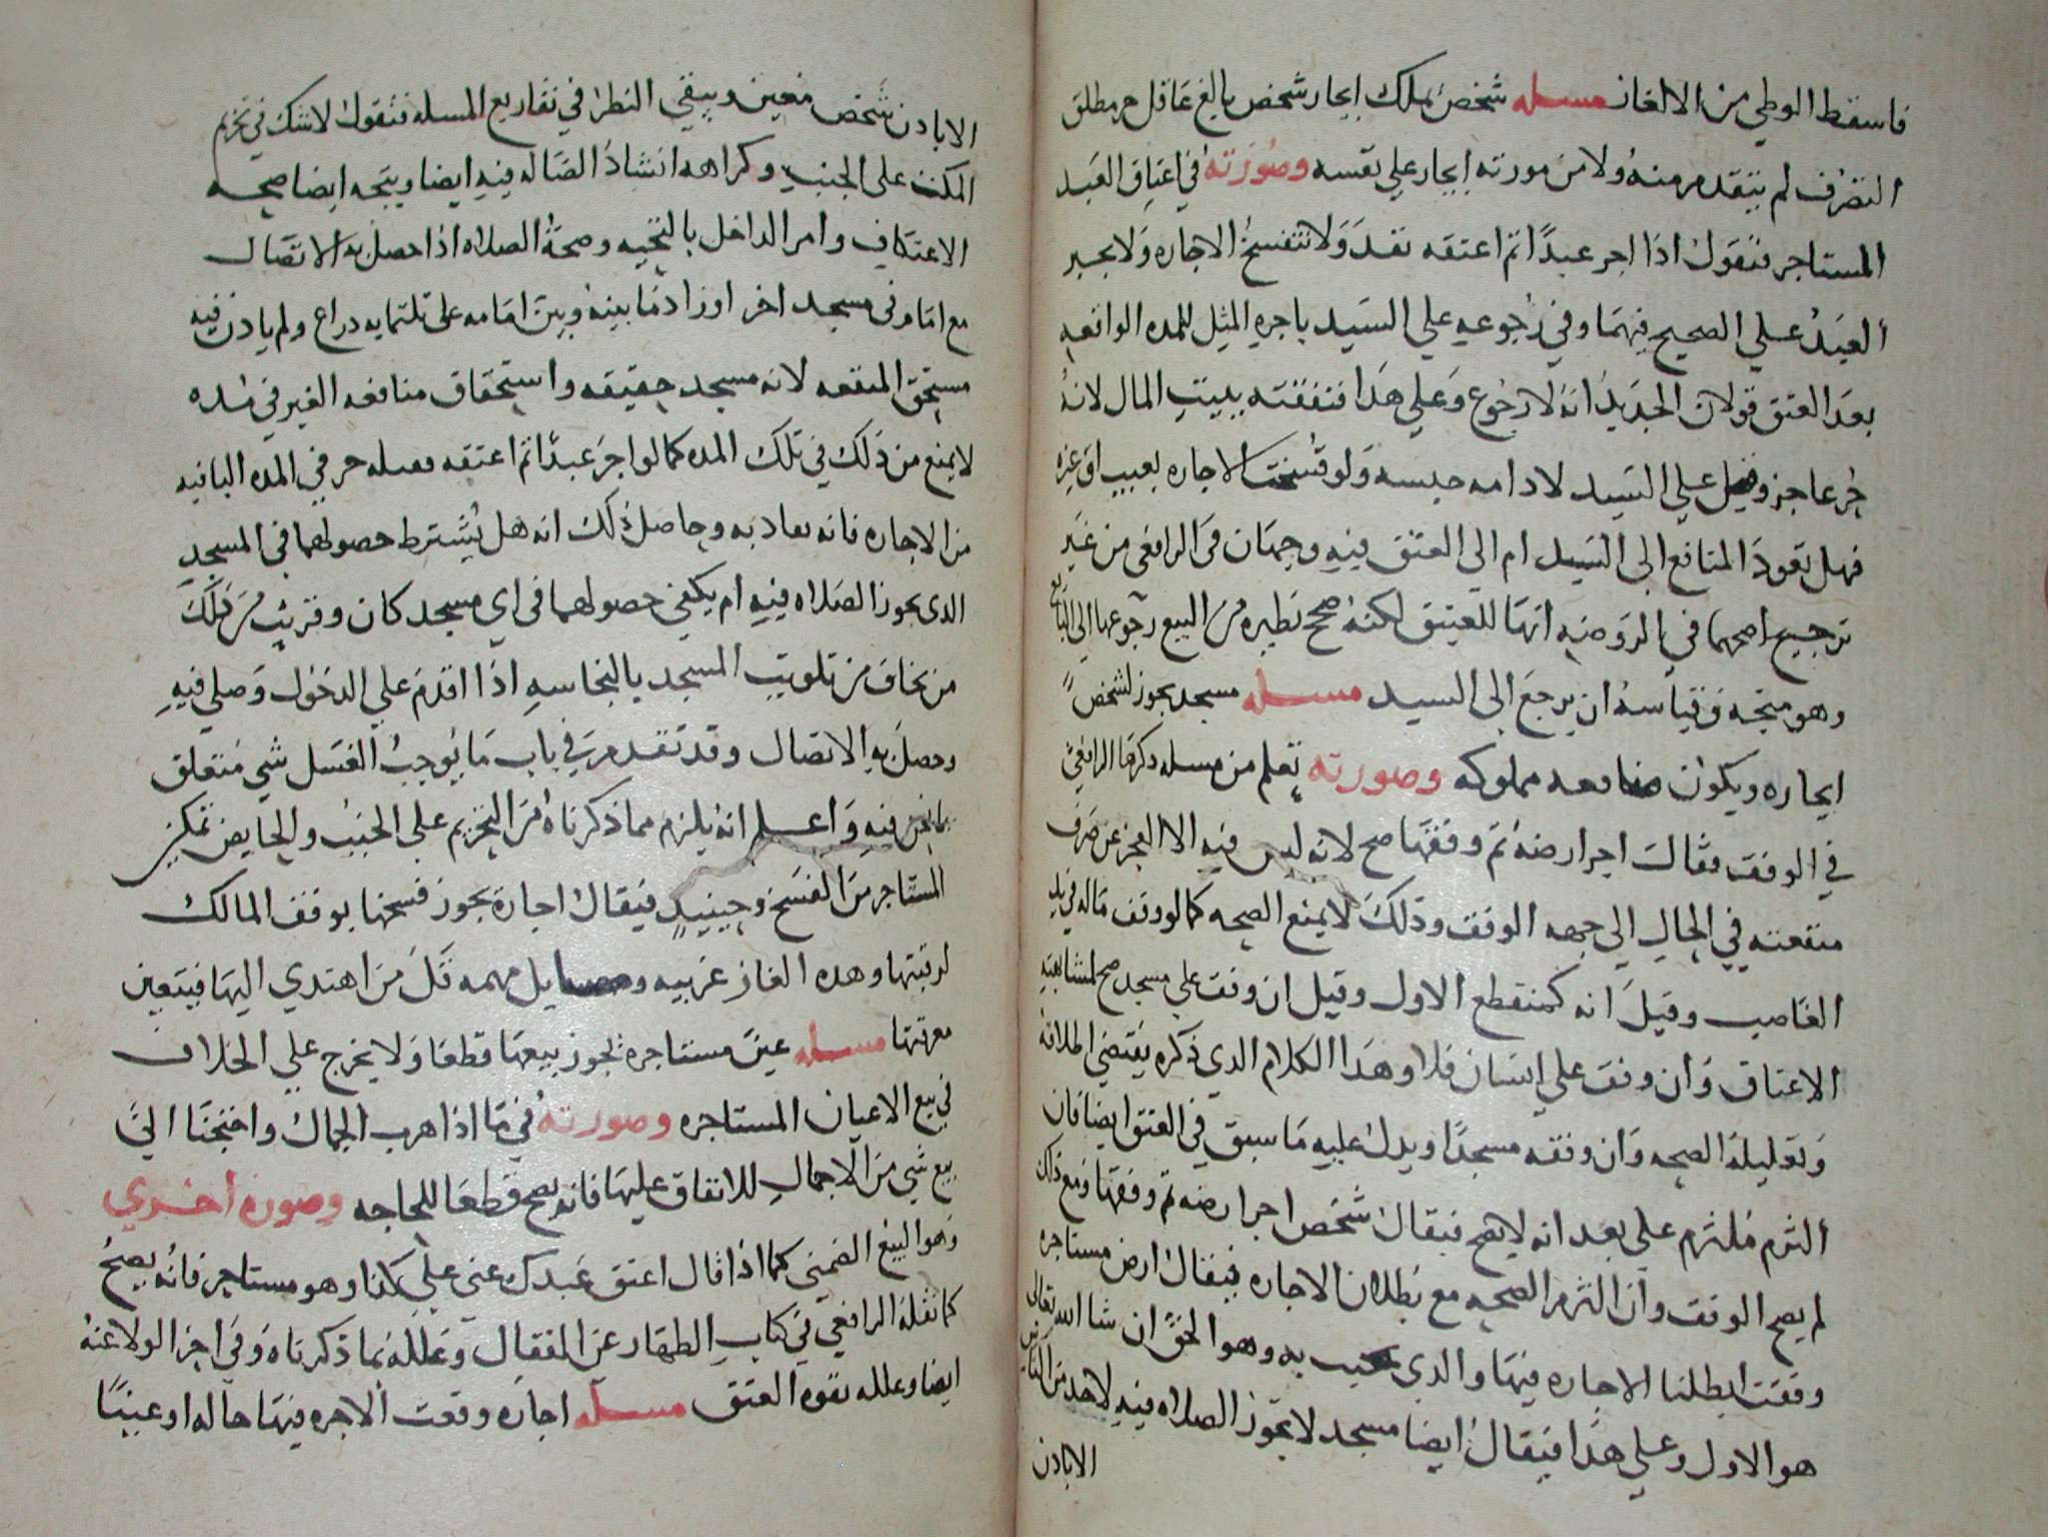 فاسقط الوطي من الالغاز مسله شخص يملك ايجار شخص بالغ عاقل حر مطلق
التصرف لم يتقدم منه ولا من مورثه ايجار على نفسه وصورته في اعتاق العبد
المستاجر فنقول اذا اجر عبدا ثم اعتقه نفد ولا تنفسخ الاجاره ولا يجبر
العبد على الصحيح فيهما وفي رجوعه على السيد باجره المثل للمده الواقعه
بعد العتق قولان الجديد انه لا رجوع وعلى هدا فنفقته ببيت المال لانه
حر عاجز وقيل على السيد لادامه حبسه ولو فسخت الاجاره بعيب او غيره
فهل تعود المنافع الى السيد ام الى العتق فيه وجهان في الرافعي من غير
ترجيح اصحهما في الروضه انها للعتيق لكنه صحح نظيره من البيع رجوعها الى البايع
وهو متجه وقياسه ان يرجع الى السيد مسله مسجد يجوز لشخص
ايجاره ويكون منافعه مملوكه وصورته تعلم من مسله دكرها الرافعي
في الوقف فقال اجر ارضه ثم وقفها صح لانه ليس فيه الا العجز عن صرف
منفعته في الحال الى جهه الوقف وذلك لا يمنع الصحه كما لو وقف ماله في يد
الغاصب وقيل انه كمنقطع الاول وقيل ان وقف على مسجد صح لمشابهته
الاعتاق وان وقف على انسان فلا وهدا الكلام الدي ذكره يقتضي اطلاقه
وتعليله الصحه وان وقفه مسجدا ويدل عليه ما سبق في العتق ايضا فان
التزم ملتزم على بعد انه لا يصح فيقال شخص اجر ارضه ثم وقفها ومع ذلك
لم يصح الوقف وان التزم الصحه مع بطلان الاجاره فيقال ارض مستاجره
وقفت ابطلنا الاجاره فيها والدي يجيب به وهو الحق ان شا الله تعالى
هو الاول وعلى هدا فيقال ايضا مسجد لا تجوز الصلاه فيه لاحد من الناس
الا بادن
الا بادن شخص معين ويبقى النظر في تفاريع المسله فنقول لا شك في تحريم
المكث على الجنب وكراهه انشاد الضاله فيه ايضا ويتجه ايضا صحه
الاعتكاف وامر الداخل بالتحيه وصحه الصلاه اذا حصل به الاتصال
مع امام في مسجد اخر او زاد ما بينه وبين امامه على ثلثمايه دراع ولم يادن فيه
مستحق المنفعه لانه مسجد حقيقه واستحقاق منافعه الغير في مده
لا يمنع من ذلك في تلك المده كما لو اجر عبدا ثم اعتقه فمسله حر في المده الباقيه
من الاجاره فانه يعاد به وحاصل ذلك انه هل يشترط حصولهما في المسجد
الدي يجوز الصلاه فيه ام يكفي حصولهما في اي مسجد كان وقريب من ذلك
من يخاف من تلويث المسجد بالنجاسه اذا اقدم على الدخول وصلى فيه
وحصل به الاتصال وقد تقدم في باب ما يوجب الغسل شي متعلق
بما نحن فيه واعلم انه يلزم مما ذكرناه من التحريم على الجنب والحايض تمكين
المستاجر من الفسخ وحينيد فيقال اجارة يجوز فسخها بوقف المالك
لرقبتها وهده الغاز غريبه ومسايل مهمه قل من اهتدي اليها فيتعين
معرفتها مسله عين مستاجره يجوز بيعها قطعا ولا يخرج على الخلاف
في بيع الاعيان المستاجره وصورته في ما اذا هرب الجمال واحتجنا الى
بيع شي من الاجمال للانفاق عليها فانه يصح قطعا للحاجه وصوره اخري
وهو البيع الضمني كما اذا قال اعتق عبدك عني على كدا وهو مستاجر فانه يصح
كما نقله الرافعي في كتاب الظهار عن القفال وعلله بما ذكرناه وفي اخر الولا عنه
ايضا وعلله بقوه العتق مسله اجاره وقعت الاجره فيها حاله او عينا